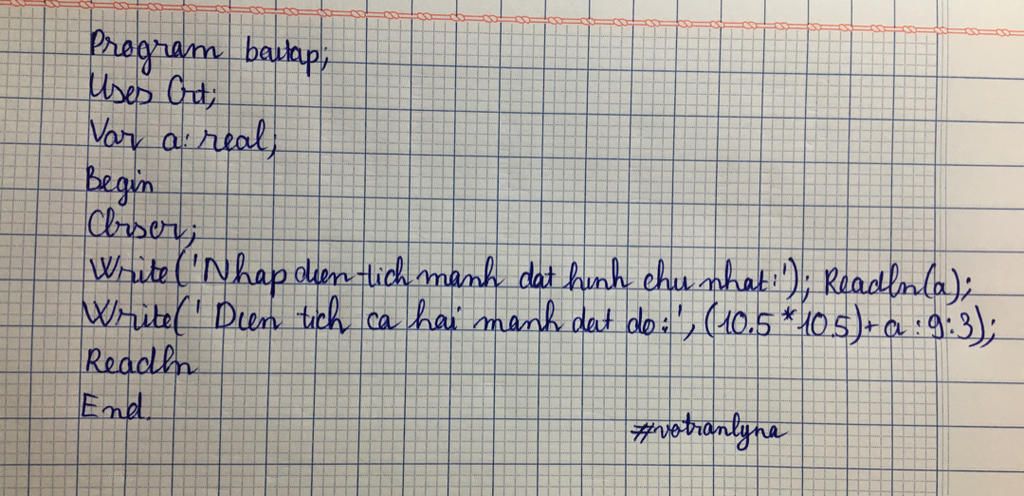 Program baitap;
Uses Crt;
Var a: real;
Begin
Clrscr;
Write('Nhap dien tich manh dat hinh chu nhat:'); Readln(a);
Write('Dien tich ca hai manh dat do:', (10.5*10.5)+a:9:3);
Readln
End.
#votranlyna